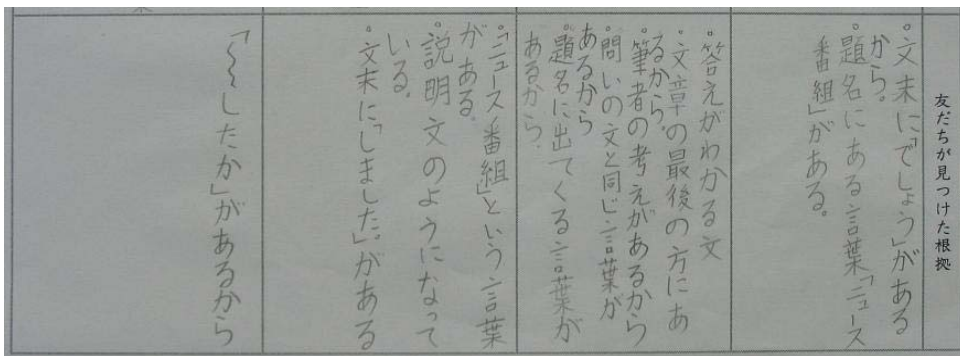 友だちが見つけた根拠
・文末に「でしょう」がある
から。
・題名にある言葉「ニュース
番組」がある。
・答えがわかる文
・文章の最後の方にあ
るから。
・筆者の考えがあるから
・問いの文と同じ言葉が
あるから
・題名に出てくる言葉が
あるから。
・「ニュース番組」という言葉
がある。
・説明文のようになって
いる。
・文末に「しました。」がある
「〜〜したか」があるから